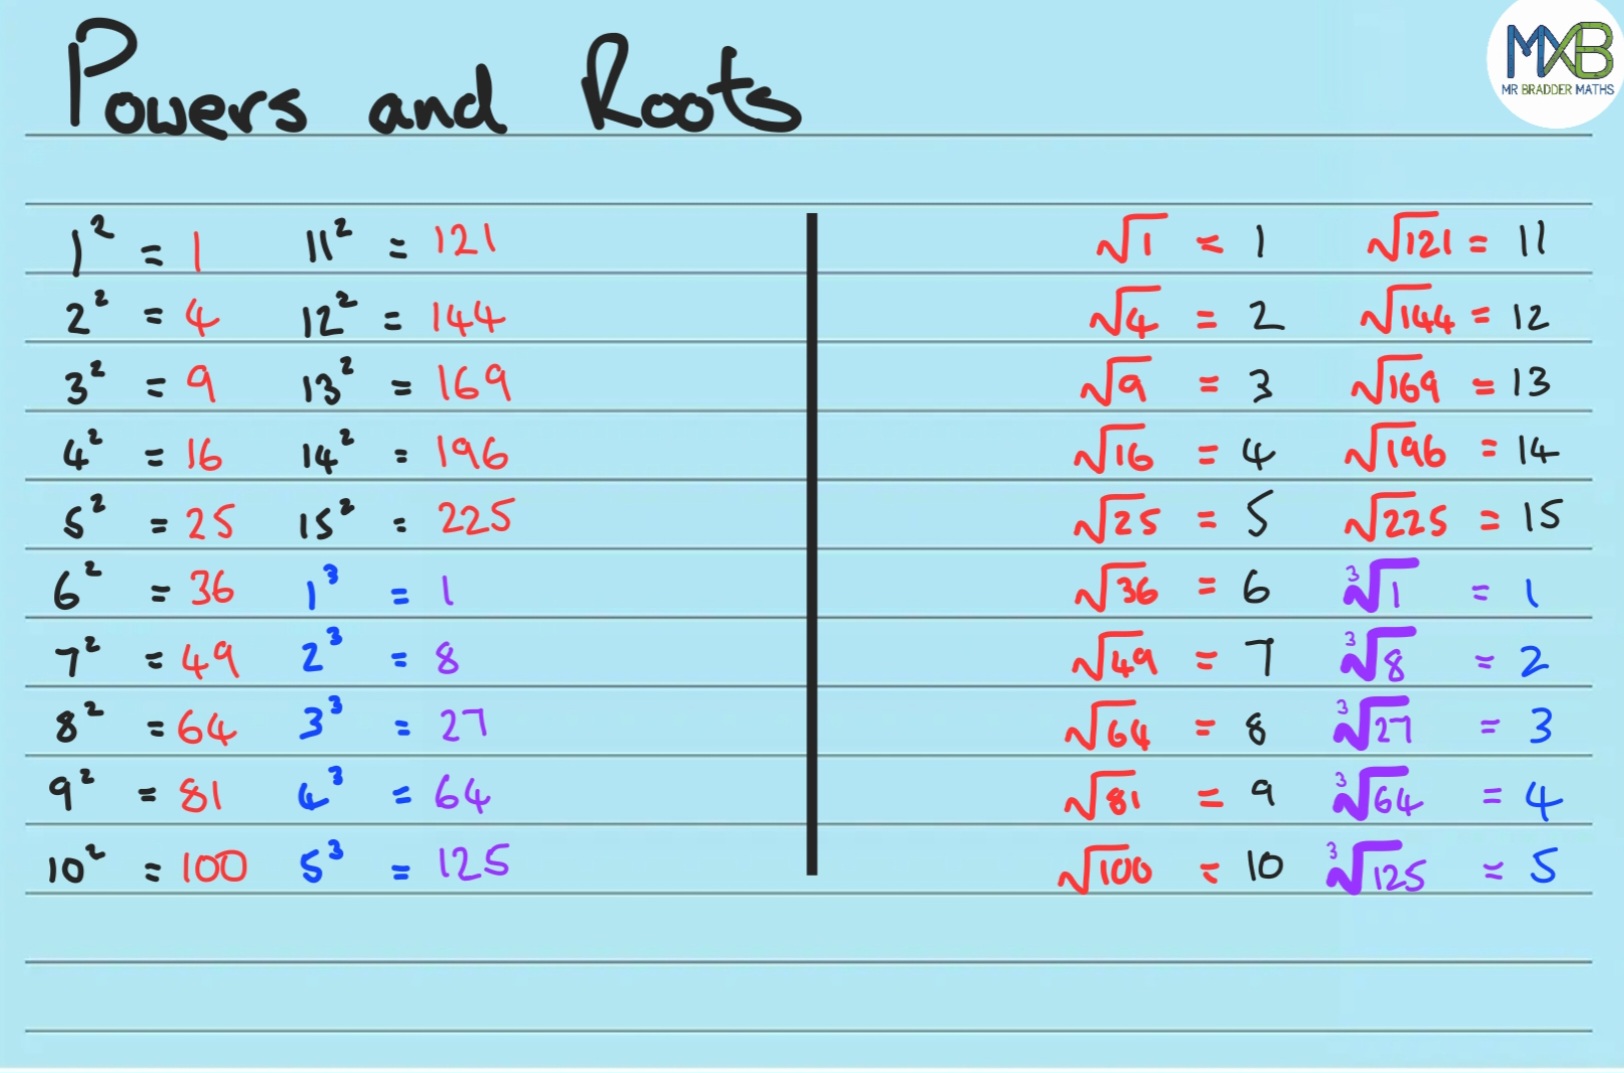 Powers and Roots
MXB
MR BRADDER MATHS
1² = 1 11² = 121
2² = 4 12² = 144
3² = 9 13² = 169
4² = 16 14² = 196
5² = 25 15² = 225
6² = 36 1³ = 1
7² = 49 2³ = 8
8² = 64 3³ = 27
9² = 81 4³ = 64
10² = 100 5³ = 125
√1 = 1 √121 = 11
√4 = 2 √144 = 12
√9 = 3 √169 = 13
√16 = 4 √196 = 14
√25 = 5 √225 = 15
√36 = 6 ³√1 = 1
√49 = 7 ³√8 = 2
√64 = 8 ³√27 = 3
√81 = 9 ³√64 = 4
√100 = 10 ³√125 = 5